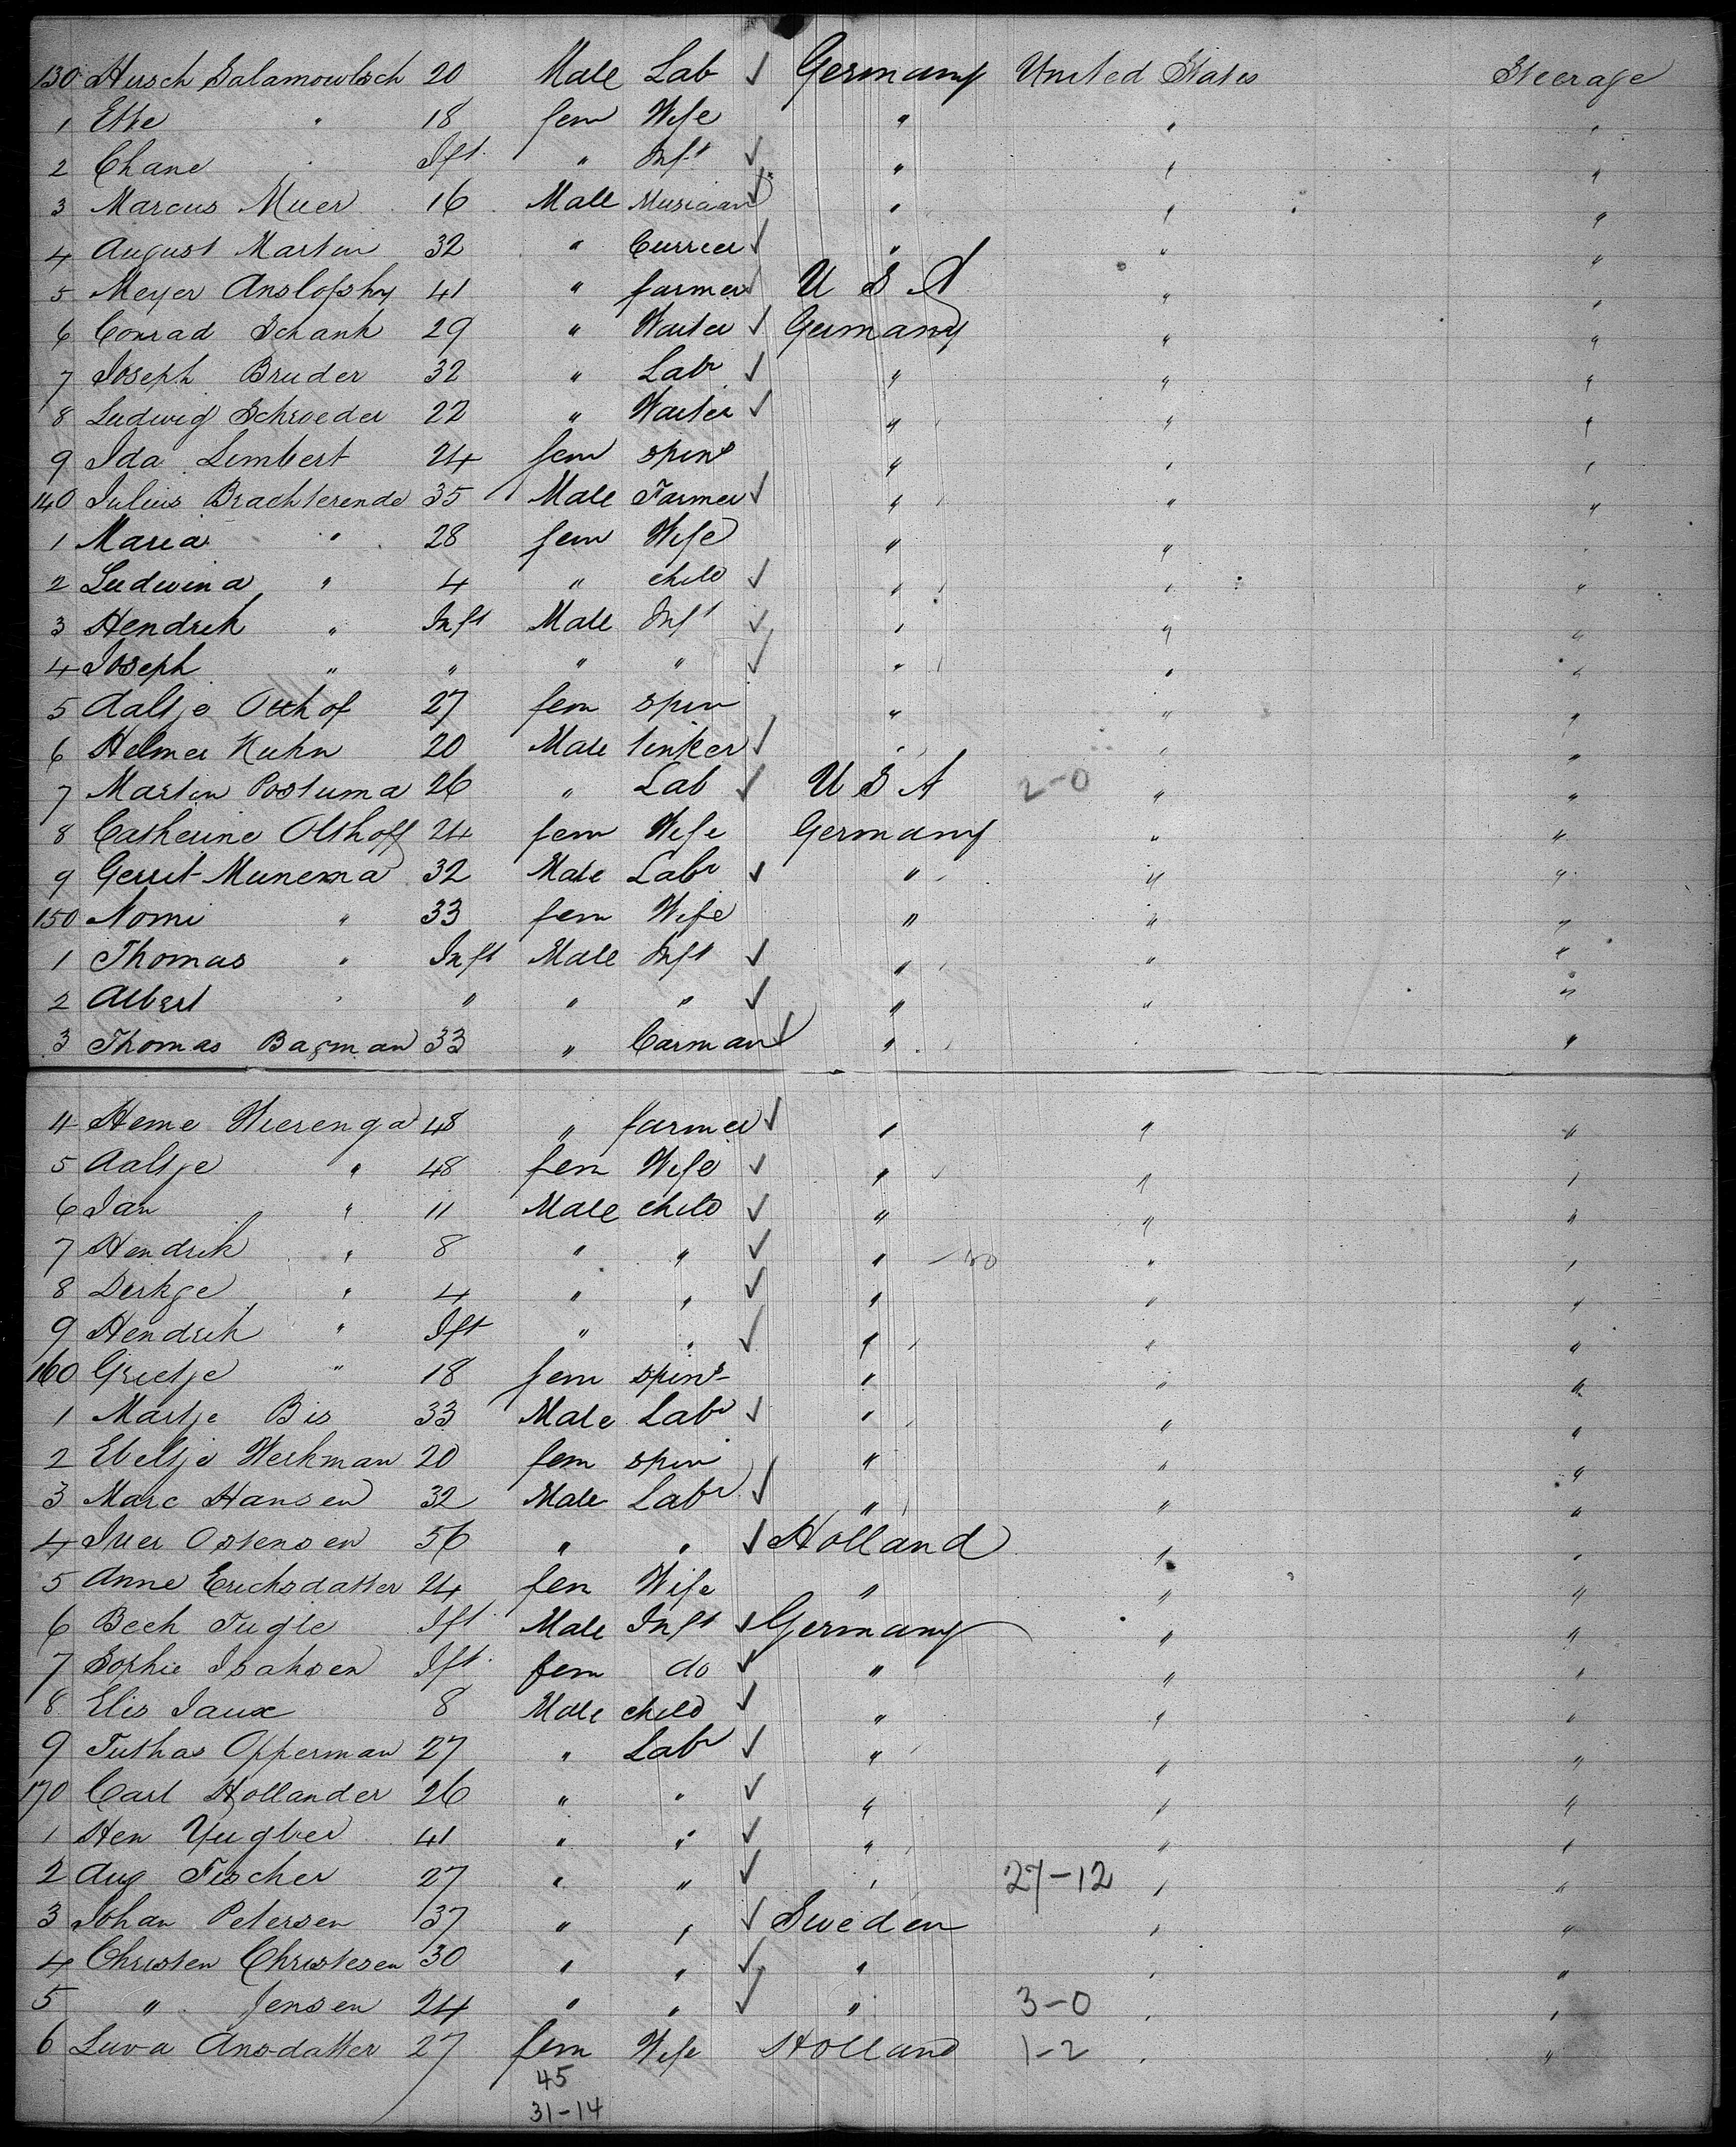 130 Hirsch Salamowitsch 20 Male Lab ✓ Germany United States Steerage
1 Ette " 18 fem Wife " " "
2 Chane " Ift " Inft ✓ " " "
3 Marcus Muer 16 Male Musician ✓ " " "
4 August Martin 32 " Currier ✓ " " "
5 Meyer Anslofsky 41 " farmer ✓ U S A " "
6 Conrad Schank 29 " Waiter ✓ Germany " "
7 Joseph Bruder 32 " Labr ✓ " " "
8 Ludwig Schroeder 22 " Waiter ✓ " " "
9 Ida Limbert 24 fem spins " " "
140 Julius Brachterende 35 Male Farmer ✓ " " "
1 Maria " 28 fem Wife " " "
2 Ludwina " 4 " child ✓ " " "
3 Hendrik " Inft Male Inft ✓ " " "
4 Joseph " " " " ✓ " " "
5 Aaltje Olthof 27 fem spin " " "
6 Helmer Kuhn 20 Male tinker ✓ " " "
7 Martin Postuma 26 " Lab ✓ U S A 2-0 " "
8 Catherine Olthoff 24 fem Wife Germany " "
9 Gerrit Munema 32 Male Labr ✓ " " "
150 Nomi " 33 fem Wife " " "
1 Thomas " Inft Male Inft ✓ " " "
2 Albert " " " " ✓ " " "
3 Thomas Bagman 33 " Carman ✓ " " "
4 Heme Wierenga 48 " farmer ✓ " " "
5 Aaltje " 48 fem Wife ✓ " " "
6 Jan " 11 Male child ✓ " " "
7 Hendrik " 8 " " ✓ " " "
8 Derkge " 4 " " ✓ " " "
9 Hendrik " Ift " " ✓ " " "
160 Grietje " 18 fem spins " " "
1 Martje Bis 33 Male Labr ✓ " " "
2 Ebeltje Werkman 20 fem spin " " "
3 Marc Hansen 32 Male Labr ✓ " " "
4 Iver Ostensen 56 " " ✓ Holland " "
5 Anne Erichsdatter 24 fem Wife " " "
6 Beck Tugle Ift Male Inft ✓ Germany " "
7 Sophie Isaksen Ift fem do ✓ " " "
8 Elis Jaux 8 Male child ✓ " " "
9 Tuthas Opperman 27 " Labr ✓ " " "
170 Carl Hollander 26 " " ✓ " " "
1 Hen Yugber 41 " " ✓ " " "
2 Aug Fischer 27 " " ✓ " 27-12 " "
3 Johan Petersen 37 " " ✓ Sweden " "
4 Christen Christesen 30 " " ✓ " " "
5 " Jensen 24 " " ✓ " 3-0 " "
6 Luva Ansdatter 27 fem Wife Holland 1-2 " "
45
31-14